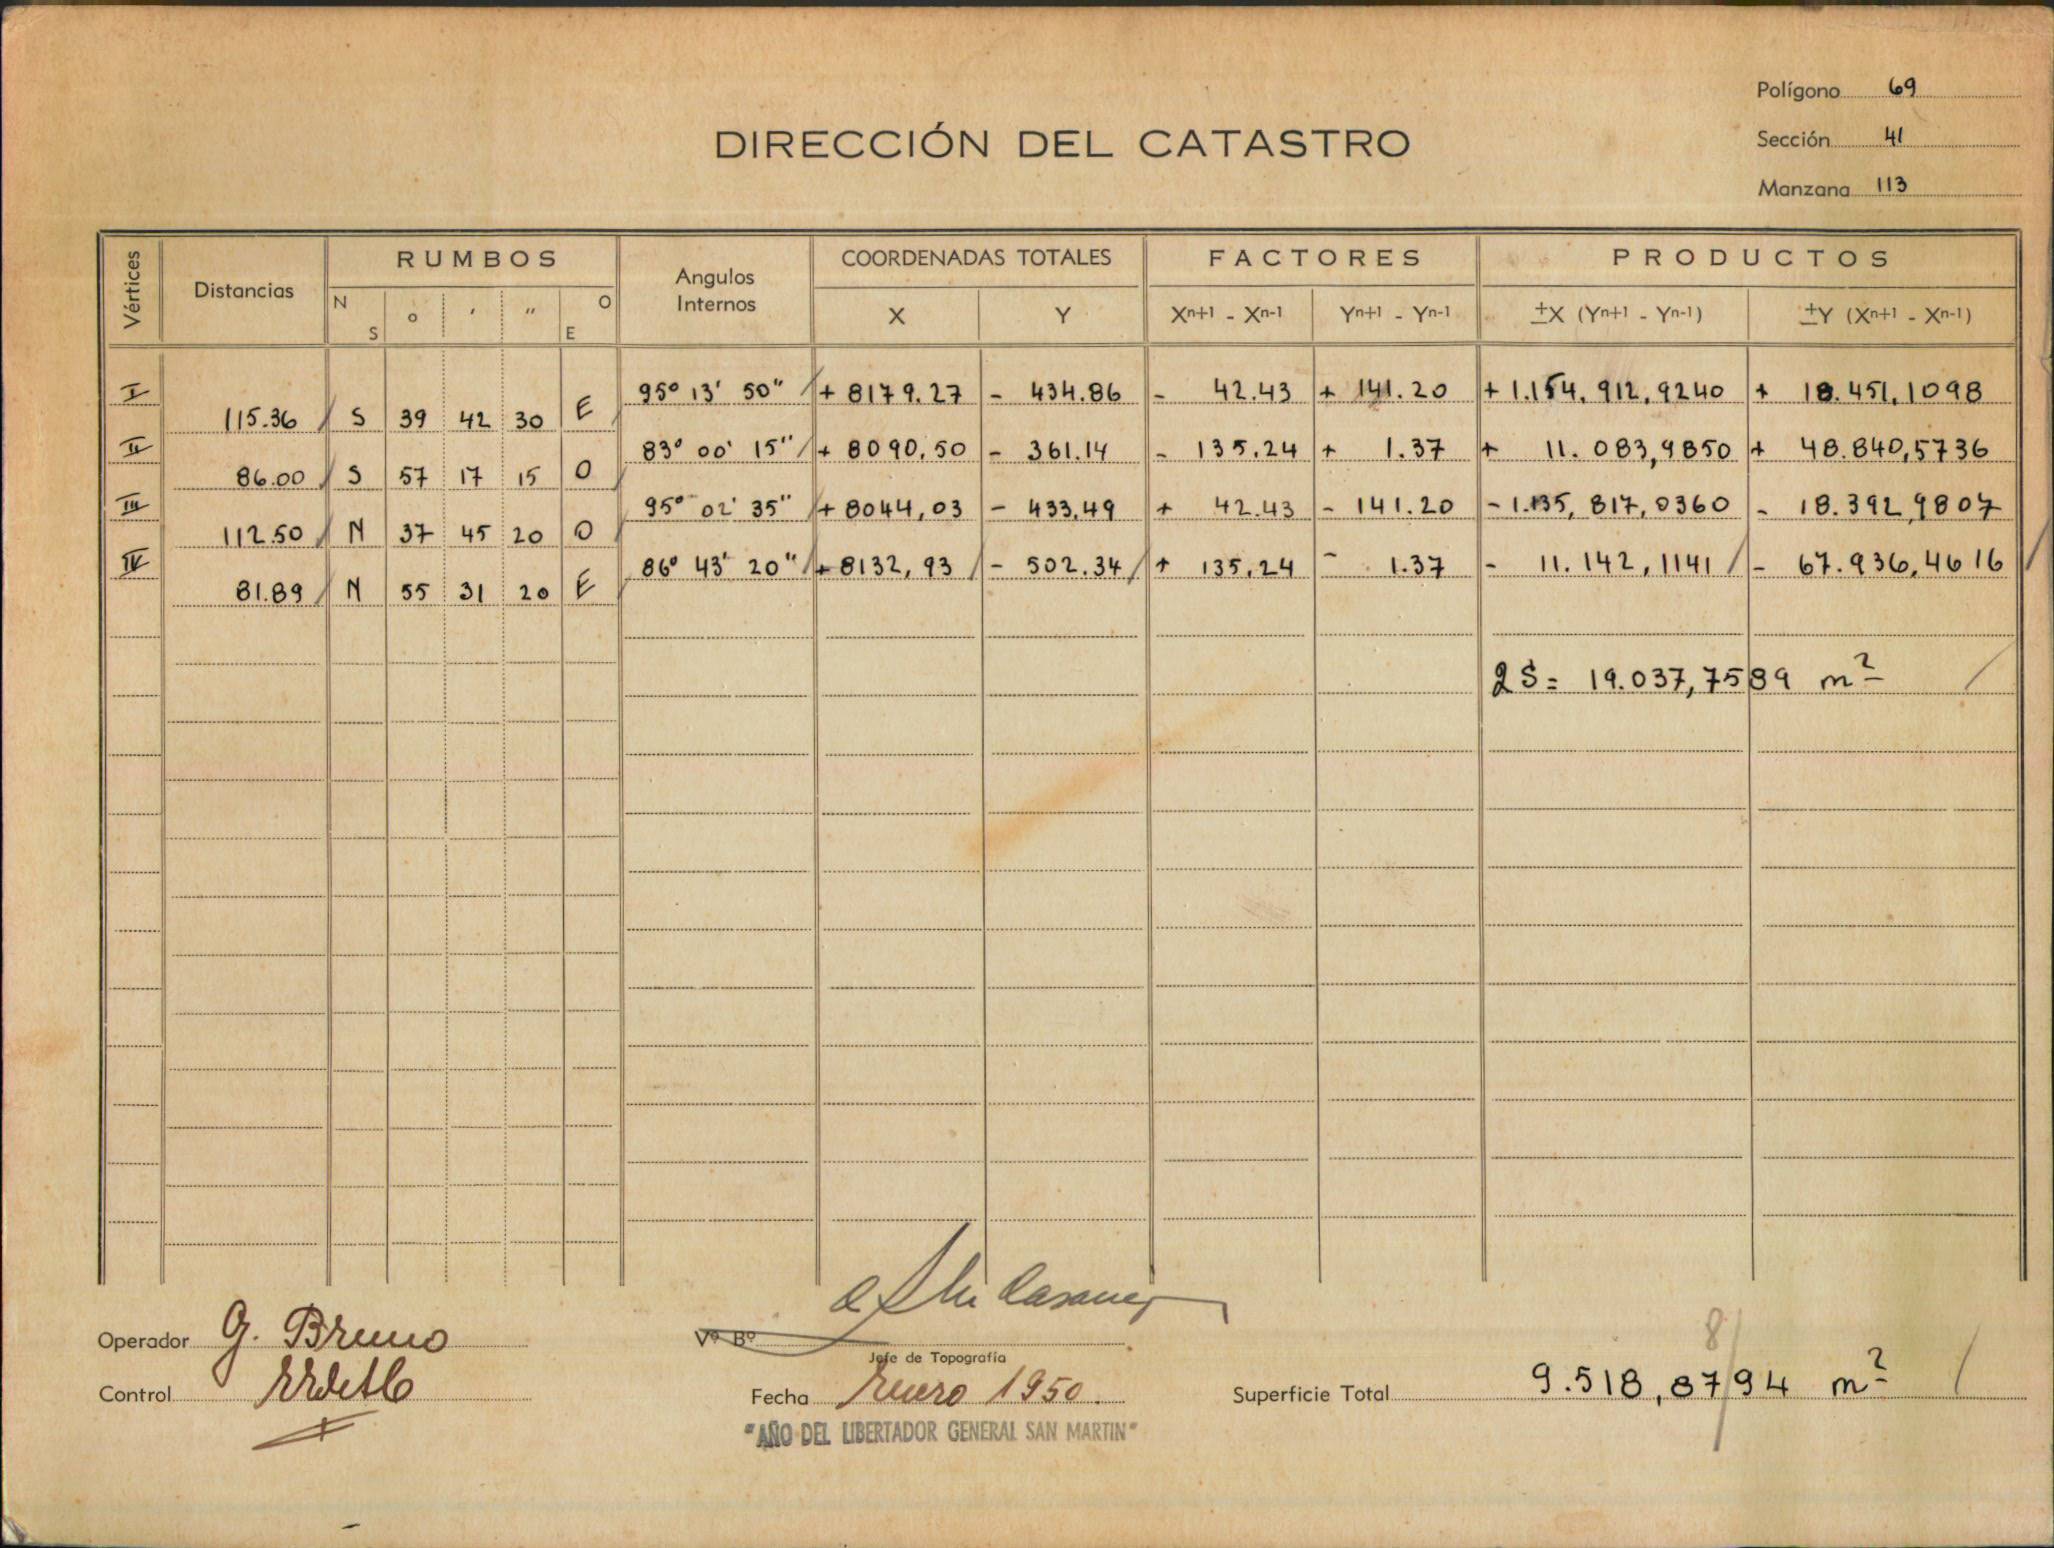 Polígono 69
DIRECCIÓN DEL CATASTRO
Sección 41
Manzana 113
Vértices Distancias RUMBOS Angulos Internos COORDENADAS TOTALES FACTORES PRODUCTOS
N S ° ' " O E X Y Xn+1 - Xn-1 Yn+1 - Yn-1 ±X (Yn+1 - Yn-1) ±Y (Xn+1 - Xn-1)
I 95° 13' 50" + 8179.27 - 434.86 - 42.43 + 141.20 + 1.154.912,9240 + 18.451,1098
115.36 S 39 42 30 E
II 83° 00' 15" + 8090,50 - 361.14 - 135,24 + 1.37 + 11.083,9850 + 48.840,5736
86.00 S 57 17 15 O
III 95° 02' 35" + 8044,03 - 433,49 + 42.43 - 141.20 - 1.135,817,0360 - 18.392,9807
112.50 N 37 45 20 O
IV 86° 43' 20" + 8132,93 - 502.34 + 135,24 - 1.37 - 11.142,1141 - 67.936,4616
81.89 N 55 31 20 E
2S = 19.037,7589 m²
Operador G. Bruno
Vº Bº
Jefe de Topografía
Control
Fecha Enero 1950.
Superficie Total 9.518,8794 m²
8
"AÑO DEL LIBERTADOR GENERAL SAN MARTIN"